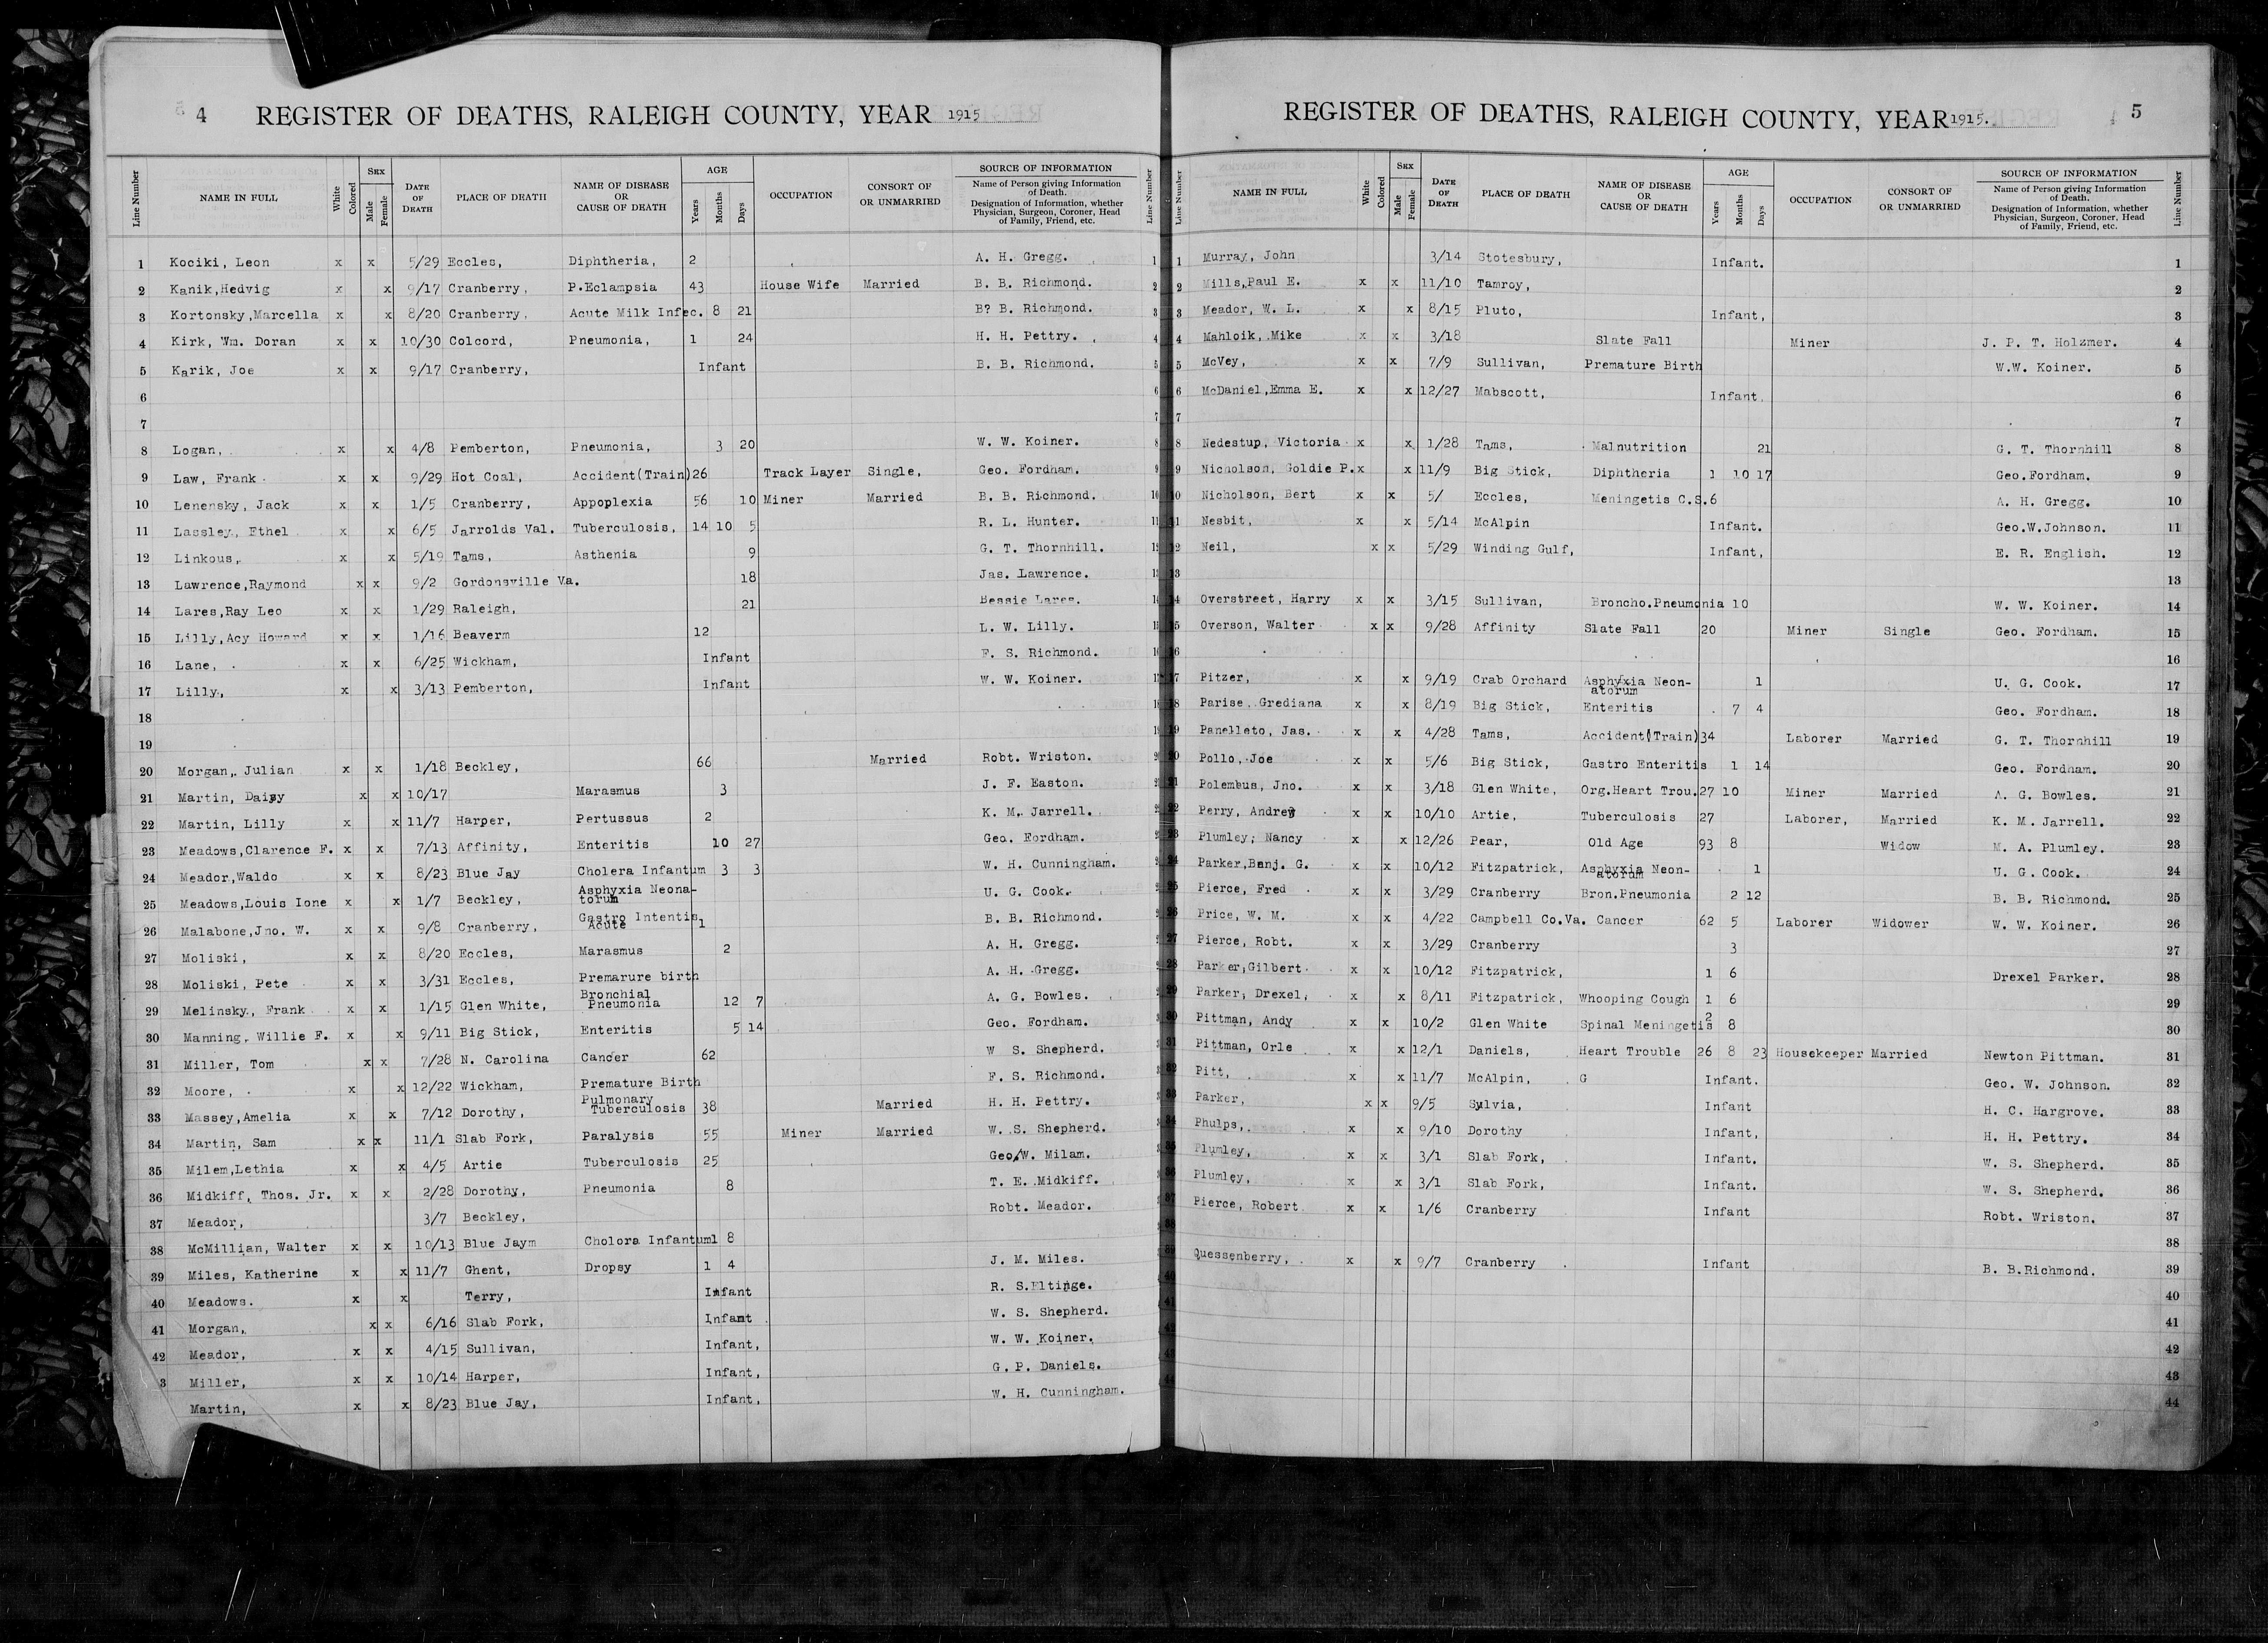 4 REGISTER OF DEATHS, RALEIGH COUNTY, YEAR 1915
Line Number NAME IN FULL White Colored SEX Male Female DATE OF DEATH PLACE OF DEATH NAME OF DISEASE OR CAUSE OF DEATH AGE Years Months Days OCCUPATION CONSORT OF OR UNMARRIED SOURCE OF INFORMATION Name of Person giving Information of Death. Designation of Information, whether Physician, Surgeon, Coroner, Head of Family, Friend, etc. Line Number
1 Kociki, Leon x x 5/29 Eccles, Diphtheria, 2 A. H. Gregg. 1
2 Kanik,Hedvig x x 9/17 Cranberry, P.Eclampsia 43 House Wife Married B. B. Richmond. 2
3 Kortonsky,Marcella x x 8/20 Cranberry, Acute Milk Infec. 8 21 B? B. Richmond. 3
4 Kirk, Wm. Doran x x 10/30 Colcord, Pneumonia, 1 24 H. H. Pettry. 4
5 Karik, Joe x x 9/17 Cranberry, Infant B. B. Richmond. 5
6 6
7 7
8 Logan, x x 4/8 Pemberton, Pneumonia, 3 20 W. W. Koiner. 8
9 Law, Frank x x 9/29 Hot Coal, Accident(Train)26 Track Layer Single, Geo. Fordham. 9
10 Lenensky, Jack x x 1/5 Cranberry, Appoplexia 56 10 Miner Married B. B. Richmond. 10
11 Lassley, Ethel x x 6/5 Jarrolds Val. Tuberculosis, 14 10 5 R. L. Hunter.
12 Linkous, x x 5/19 Tams, Asthenia 9 G. T. Thornhill.
13 Lawrence,Raymond x x 9/2 Gordonsville Va. 18 Jas. Lawrence.
14 Lares,Ray Leo x x 1/29 Raleigh, 21 Bessie Lares.
15 Lilly,Acy Howard x x 1/16 Beaverm 12 L. W. Lilly.
16 Lane, x x 6/25 Wickham, Infant F. S. Richmond.
17 Lilly, x x 3/13 Pemberton, Infant W. W. Koiner.
18
19
20 Morgan, Julian x x 1/18 Beckley, 66 Married Robt. Wriston.
21 Martin, Daisy x x 10/17 Marasmus 3 J. F. Easton.
22 Martin, Lilly x x 11/7 Harper, Pertussus 2 K. M. Jarrell.
23 Meadows,Clarence F. x x 7/13 Affinity, Enteritis 10 27 Geo. Fordham.
24 Meador,Waldo x x 8/23 Blue Jay Cholera Infantum 3 3 W. H. Cunningham.
25 Meadows,Louis Ione x x 1/7 Beckley, Asphyxia Neona-torum U. G. Cook.
26 Malabone,Jno. W. x x 9/8 Cranberry, Gastro Intentis Acute 1 B. B. Richmond.
27 Moliski, x x 8/20 Eccles, Marasmus 2 A. H. Gregg.
28 Moliski, Pete x x 3/31 Eccles, Premarure birth A. H. Gregg.
29 Melinsky, Frank x x 1/15 Glen White, Bronchial Pneumonia 12 7 A. G. Bowles.
30 Manning, Willie F. x x 9/11 Big Stick, Enteritis 5 14 Geo. Fordham.
31 Miller, Tom x x 7/28 N. Carolina Cancer 62 W S. Shepherd.
32 Moore, x x 12/22 Wickham, Premature Birth F. S. Richmond.
33 Massey,Amelia x x 7/12 Dorothy, Pulmonary Tuberculosis 38 Married H. H. Pettry.
34 Martin, Sam x x 11/1 Slab Fork, Paralysis 55 Miner Married W. S. Shepherd.
35 Milem,Lethia x x 4/5 Artie Tuberculosis 25 Geo.W. Milam.
36 Midkiff, Thos. Jr. x x 2/28 Dorothy, Pneumonia 8 T. E. Midkiff.
37 Meador, 3/7 Beckley, Robt. Meador.
38 McMillian, Walter x x 10/13 Blue Jaym Cholora Infantum1 8
39 Miles, Katherine x x 11/7 Ghent, Dropsy 1 4 J. M. Miles.
40 Meadows. x x Terry, Infant R. S.Eltinge.
41 Morgan, x x 6/16 Slab Fork, Infant W. S. Shepherd.
42 Meador, x x 4/15 Sullivan, Infant, W. W. Koiner.
3 Miller, x x 10/14 Harper, Infant, G. P. Daniels.
Martin, x x 8/23 Blue Jay, Infant, W. H. Cunningham.
REGISTER OF DEATHS, RALEIGH COUNTY, YEAR 1915. 5
Line Number NAME IN FULL White Colored SEX Male Female DATE OF DEATH PLACE OF DEATH NAME OF DISEASE OR CAUSE OF DEATH AGE Years Months Days OCCUPATION CONSORT OF OR UNMARRIED SOURCE OF INFORMATION Name of Person giving Information of Death. Designation of Information, whether Physician, Surgeon, Coroner, Head of Family, Friend, etc. Line Number
1 Murray, John 3/14 Stotesbury, Infant. 1
2 Mills,Paul E. x x 11/10 Tamroy, 2
3 Meador, W. L. x x 8/15 Pluto, Infant, 3
4 Mahloik, Mike x x 3/18 Slate Fall Miner J. P. T. Holzmer. 4
5 McVey, x x 7/9 Sullivan, Premature Birth W.W. Koiner. 5
6 McDaniel,Emma E. x x 12/27 Mabscott, Infant. 6
7 7
8 Nedestup, Victoria x x 1/28 Tams, Malnutrition 21 G. T. Thornhill 8
9 Nicholson, Goldie P.x x 11/9 Big Stick, Diphtheria 1 10 17 Geo.Fordham. 9
10 Nicholson, Bert x x 5/ Eccles, Meningetis C.S.6 A. H. Gregg. 10
11 Nesbit, x x 5/14 McAlpin Infant. Geo.W.Johnson. 11
12 Neil, x x 5/29 Winding Gulf, Infant, E. R. English. 12
13 13
14 Overstreet, Harry x x 3/15 Sullivan, Broncho.Pneumonia 10 W. W. Koiner. 14
15 Overson, Walter x x 9/28 Affinity Slate Fall 20 Miner Single Geo. Fordham. 15
16 16
17 Pitzer, x x 9/19 Crab Orchard Asphyxia Neon-atorum 1 U. G. Cook. 17
18 Parise, Grediana x x 8/19 Big Stick, Enteritis 7 4 Geo. Fordham. 18
19 Panelleto, Jas. x x 4/28 Tams, Accident(Train)34 Laborer Married G. T. Thornhill 19
20 Pollo, Joe x x 5/6 Big Stick, Gastro Enteritis 1 14 Geo. Fordham. 20
21 Polembus, Jno. x x 3/18 Glen White, Org.Heart Trou.27 10 Miner Married A. G. Bowles. 21
22 Perry, Andrew x x 10/10 Artie, Tuberculosis 27 Laborer, Married K. M. Jarrell. 22
23 Plumley, Nancy x x 12/26 Pear, Old Age 93 8 Widow M. A. Plumley. 23
24 Parker,Benj. G. x x 10/12 Fitzpatrick, Asphyxia Neon-atorum 1 U. G. Cook. 24
25 Pierce, Fred x x 3/29 Cranberry Bron.Pneumonia 2 12 B. B. Richmond. 25
26 Price, W. M. x x 4/22 Campbell Co.Va. Cancer 62 5 Laborer Widower W. W. Koiner. 26
27 Pierce, Robt. x x 3/29 Cranberry 3 27
28 Parker,Gilbert x x 10/12 Fitzpatrick, 1 6 Drexel Parker. 28
29 Parker, Drexel, x x 8/11 Fitzpatrick, Whooping Cough 1 6 29
30 Pittman, Andy x x 10/2 Glen White Spinal Meningetis 2 8 30
31 Pittman, Orle x x 12/1 Daniels, Heart Trouble 26 8 23 Housekeeper Married Newton Pittman. 31
32 Pitt, x x 11/7 McAlpin, G Infant. Geo. W. Johnson. 32
33 Parker, x x 9/5 Sylvia, Infant H. C. Hargrove. 33
34 Phulps, x x 9/10 Dorothy Infant, H. H. Pettry. 34
35 Plumley, x x 3/1 Slab Fork, Infant. W. S. Shepherd. 35
36 Plumley, x x 3/1 Slab Fork, Infant. W. S. Shepherd. 36
37 Pierce, Robert x x 1/6 Cranberry Infant Robt. Wriston. 37
38 38
39 Quessenberry, x x 9/7 Cranberry Infant B. B.Richmond. 39
40 40
41 41
42 42
43 43
44 44